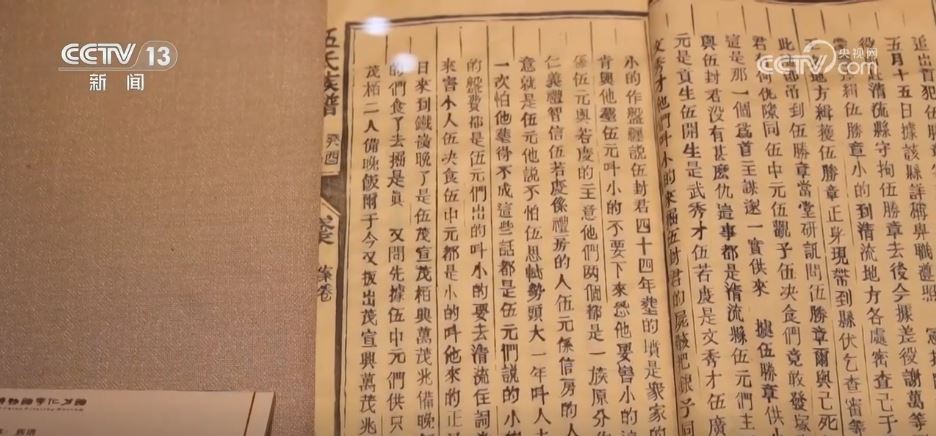 CCTV 13
新闻
央视网
CCTV.com
近出首犯伍
五月十五日據該縣詳稱卑職遵照
役赴清流縣守拘伍勝章去後今據差役謝萬等
緝伍勝章小的到清流地方各處密查已于
地方緝獲伍勝章正身現帶到縣伏乞查審等
此吊到伍勝章當堂研訊問伍勝章爾與已死
君有何仇隙同伍中元伍觀予伍决食們竟敢發塚
這是那一個為首主謀逐一實供來 據伍勝章供小
與伍封君没有甚麽仇這事都是清流縣伍元們主
元是貢生伍開生是武秀才伍若虔是文秀才伍
文秀才他們叫小的來伍封君的屍骸
小的作盤纏說伍封君四十四年塟的墳是衆家的
肯興他塟伍元叫小的不要下來恐他要害小的這
係伍元與若虔的主意他們两個都是一族原分
仁義禮智信伍若虔係禮房的人伍元係信房的人
意就是伍元他說不怕伍思勢頭大一年叫人
一次怕他塟得不成這些話都是伍元們說的小的
的盤費都是伍元們出的叫小的要去清流住詞
來害小人伍决食伍中元都是小的叫他來的正
日來到鐵嶺晚了是伍茂宣茂柏興萬茂兆備晚
的們食了去掘是眞 又問先據伍中元們供只
茂柏二人備晚飯爾于今又扳出茂宣興萬茂兆
伍氏族譜 癸酉
族譜